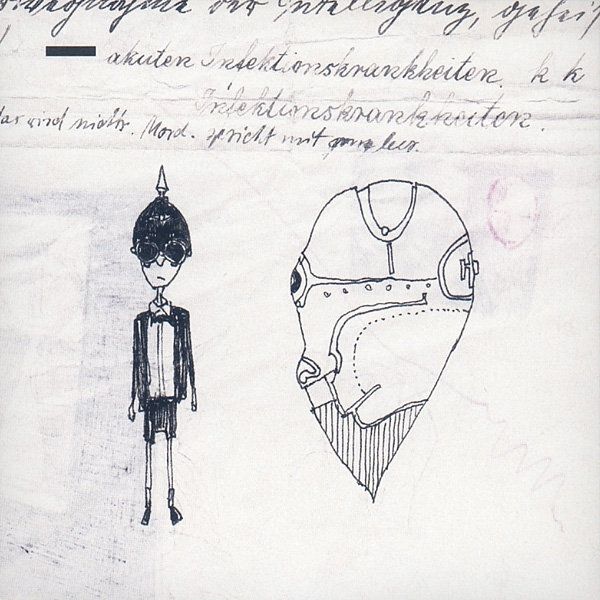 der Intelligenz,
akuten Infektionskrankheiten, k k
Infektionskrankheiten.
wird nicht. Mord. spricht mit